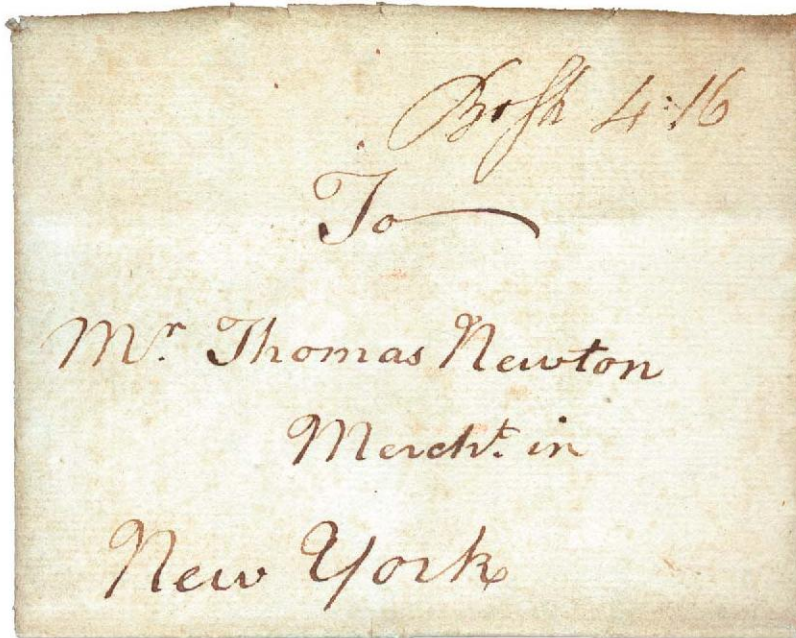 Bosh 4:16
To
Mr. Thomas Newton
Mercht. in
New York